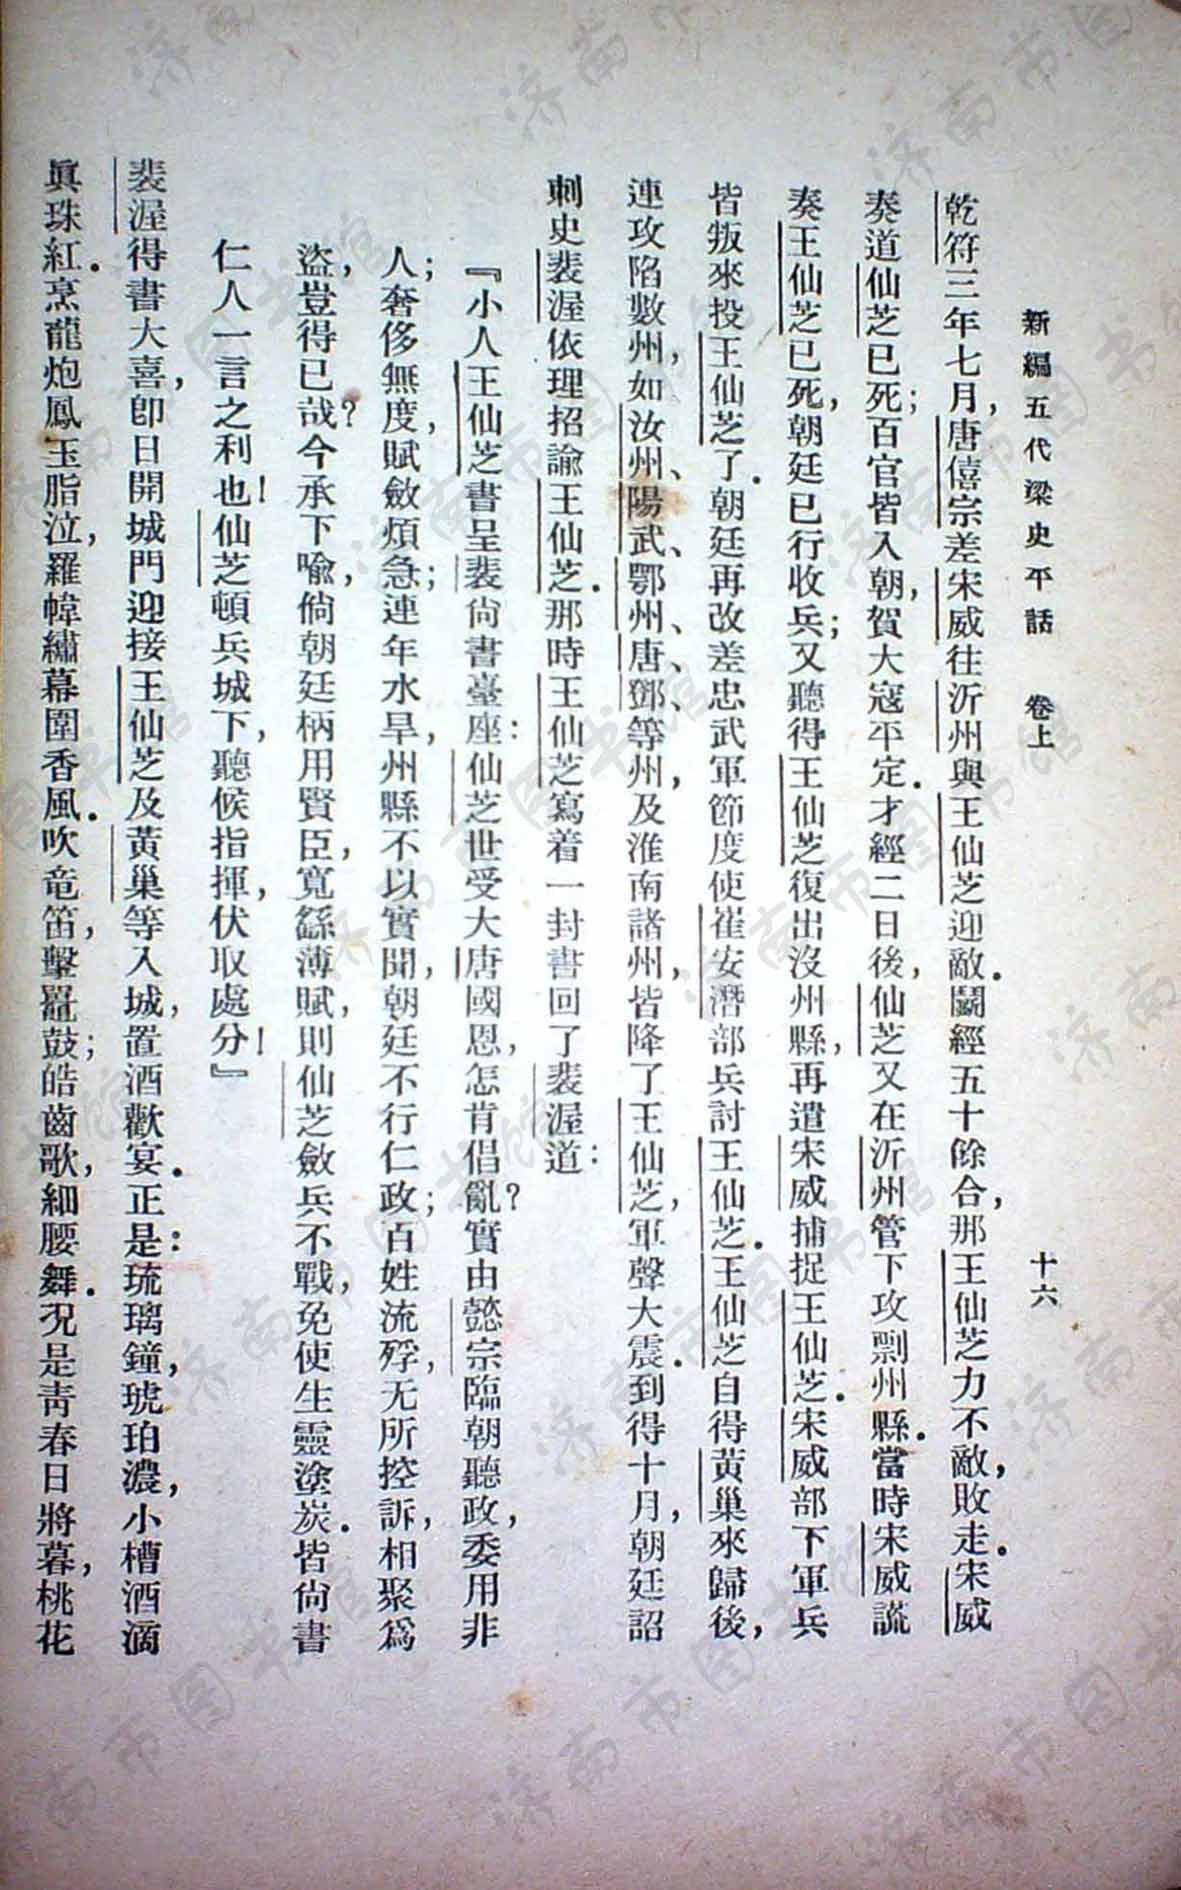 新編五代梁史平話　卷上　十六
乾符三年七月，唐僖宗差宋威往沂州與王仙芝迎敵．鬭經五十餘合，那王仙芝力不敵，敗走．宋威
奏道仙芝已死；百官皆入朝，賀大寇平定．才經二日後，仙芝又在沂州管下攻剽州縣．當時宋威謊
奏王仙芝已死，朝廷已行收兵；又聽得王仙芝復出沒州縣，再遣宋威捕捉王仙芝．宋威部下軍兵
皆叛來投王仙芝了．朝廷再改差忠武軍節度使崔安潛部兵討王仙芝．王仙芝自得黃巢來歸後，
連攻陷數州，如汝州、陽武、鄂州、唐、鄧、等州，及淮南諸州，皆降了王仙芝，軍聲大震．到得十月，朝廷詔
刺史裴渥依理招諭王仙芝．那時王仙芝寫着一封書回了裴渥道：
『小人王仙芝書呈裴尙書臺座：仙芝世受大唐國恩，怎肯倡亂？實由懿宗臨朝聽政，委用非
人；奢侈無度，賦斂煩急；連年水旱，州縣不以實聞，朝廷不行仁政；百姓流殍，无所控訴，相聚爲
盜，豈得已哉？今承下喻，倘朝廷柄用賢臣，寬繇薄賦，則仙芝斂兵不戰，免使生靈塗炭．皆尙書
仁人一言之利也！仙芝頓兵城下，聽候指揮，伏取處分！』
裴渥得書大喜，卽日開城門迎接王仙芝及黃巢等入城，置酒歡宴．正是：琉璃鐘，琥珀濃，小槽酒滴
眞珠紅．烹龍炮鳳玉脂泣，羅幃繡幕圍香風．吹竜笛，擊鼉鼓；皓齒歌，細腰舞．況是靑春日將暮，桃花
济南市图书馆